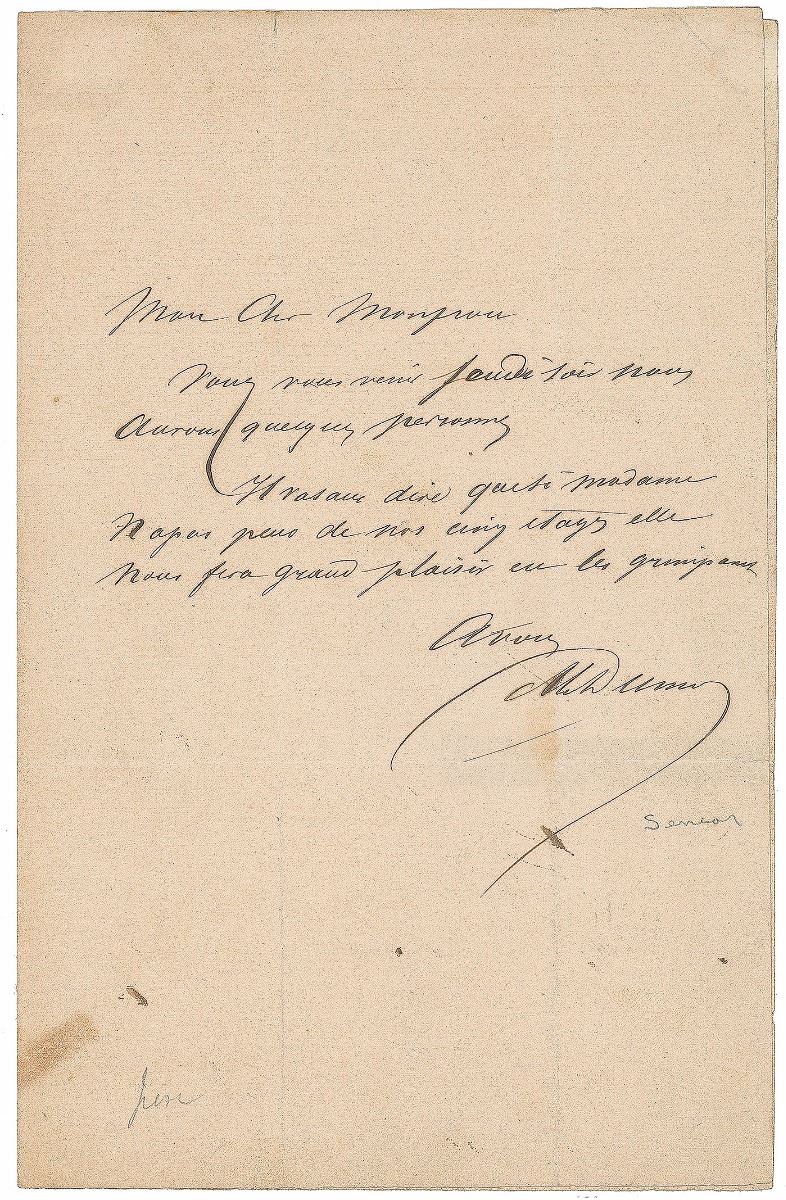 Mon Cher Monsieur
Voulez vous venir Jeudi soir nous
Aurons quelques personnes
Il va sans dire que si madame
N a pas peur de nos cinq etages elle
Nous fera grand plaisir en les grimpant
A vous
Alex Dumas
Senior
père